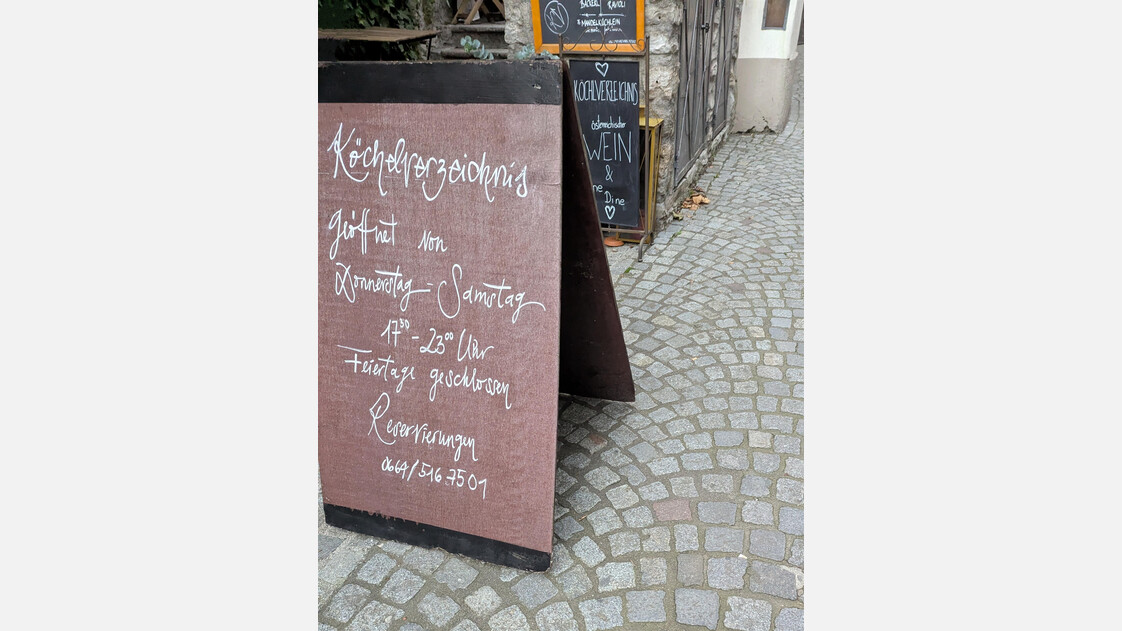 Köchelverzeichnis
geöffnet von
Donnerstag - Samstag
17³⁰ - 23⁰⁰ Uhr
Feiertage geschlossen
Reservierungen
0664/516 75 01
RAVIOLI
MANDELKÜCHLEIN
KÖCHLVERZEICHNIS
österreichischer
WEIN
&
Dine